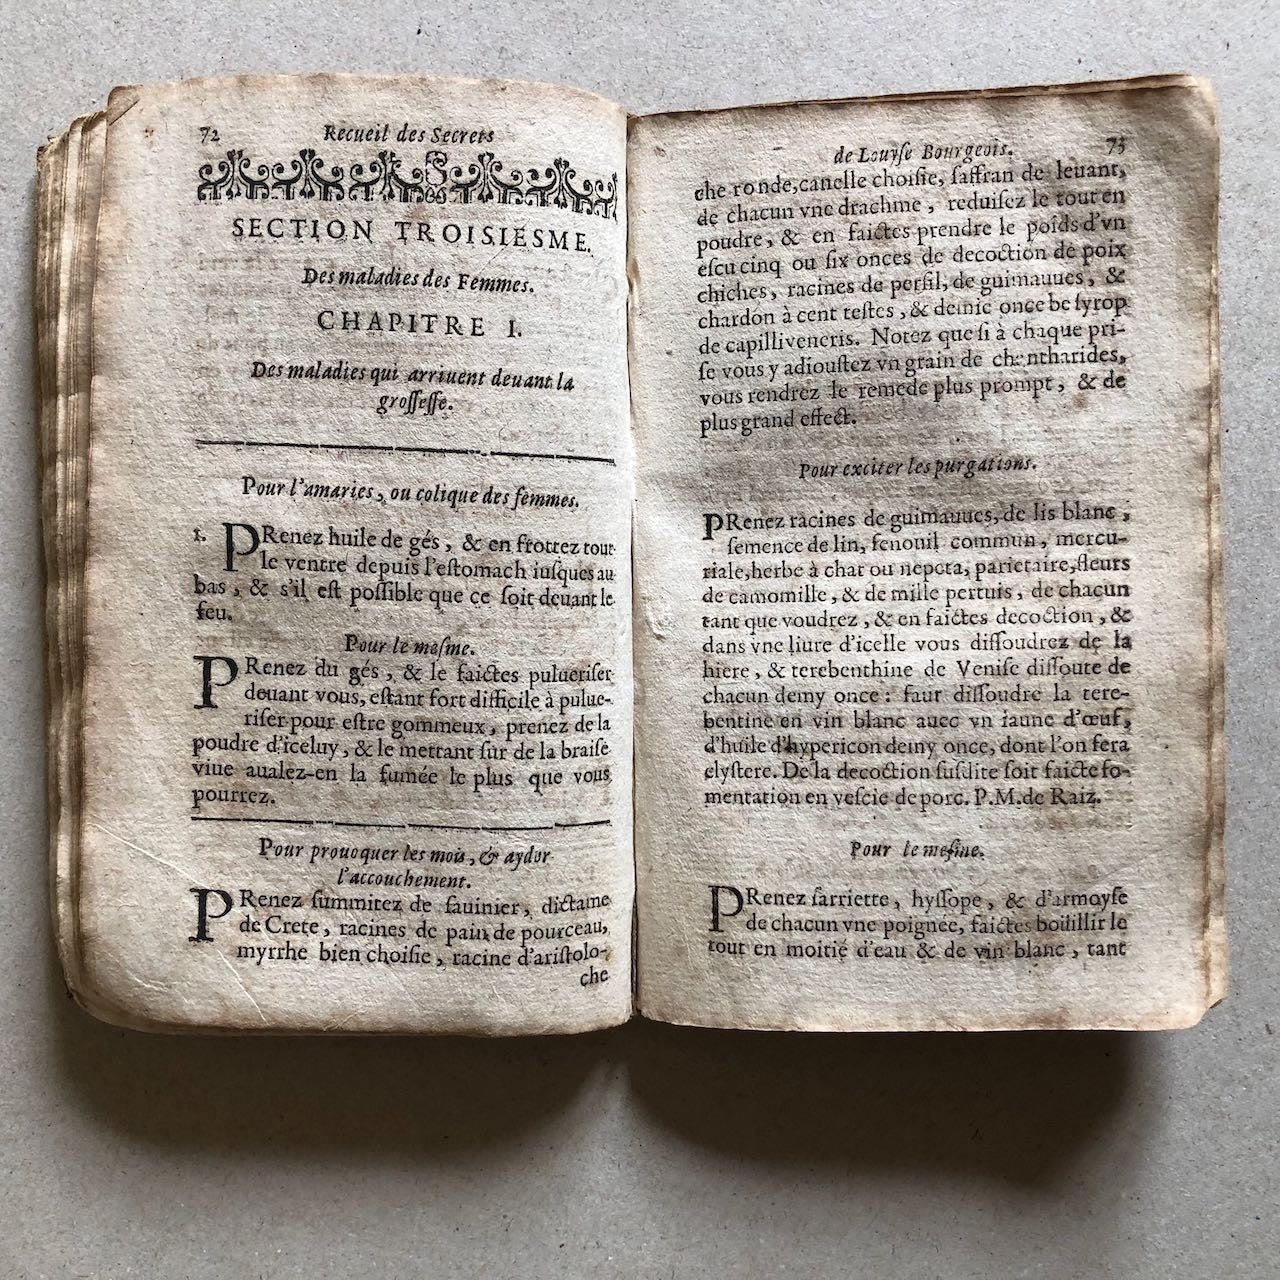 72 Recueil des Secrets
SECTION TROISIESME.
Des maladies des Femmes.
CHAPITRE I.
Des maladies qui arriuent deuant la
grossesse.
Pour l'amaries, ou colique des femmes.
1. PRenez huile de gés, & en frottez tout
le ventre depuis l'estomach iusques au
bas, & s'il est possible que ce soit deuant le
feu.
Pour le mesme.
PRenez du gés, & le faictes pulueriser
deuant vous, estant fort difficile à pulue-
riser pour estre gommeux, prenez de la
poudre d'iceluy, & le mettant sur de la braise
viue aualez-en la fumée le plus que vous
pourrez.
Pour prouoquer les mois, & ayder
l'accouchement.
PRenez summitez de sauinier, dictame
de Crete, racines de pain de pourceau,
myrrhe bien choisie, racine d'aristolo-
che
de Louyse Bourgeois. 73
che ronde, canelle choisie, saffran de leuant,
de chacun vne drachme, reduisez le tout en
poudre, & en faictes prendre le poids d'vn
escu cinq ou six onces de decoction de poix
chiches, racines de persil, de guimauues, &
chardon à cent testes, & demie once be syrop
de capilliveneris. Notez que si à chaque pri-
se vous y adioustez vn grain de chantharides,
vous rendrez le remede plus prompt, & de
plus grand effect.
Pour exciter les purgations.
PRenez racines de guimauues, de lis blanc,
semence de lin, fenouil commun, mercu-
riale, herbe à chat ou nepeta, parietaire, fleurs
de camomille, & de mille pertuis, de chacun
tant que voudrez, & en faictes decoction, &
dans vne liure d'icelle vous dissoudrez de la
hiere, & terebenthine de Venise dissoute de
chacun demy once: faut dissoudre la tere-
bentine en vin blanc auec vn iaune d'œuf,
d'huile d'hypericon demy once, dont l'on fera
clystere. De la decoction susdite soit faicte fo-
mentation en vescie de porc. P. M. de Raiz.
Pour le mesme.
PRenez sarriette, hyssope, & d'armoyse
de chacun vne poignée, faictes boüillir le
tout en moitié d'eau & de vin blanc, tant